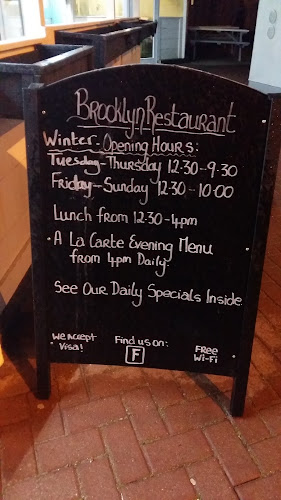 Brooklyn Restaurant
Winter - Opening Hours:
Tuesday-Thursday 12.30-9.30
Friday-Sunday 12.30-10.00
Lunch from 12.30-4pm
A La Carte Evening Menu
from 4pm Daily.
See Our Daily Specials Inside
We Accept
Visa!
Find us on:
F
Free
Wi-Fi